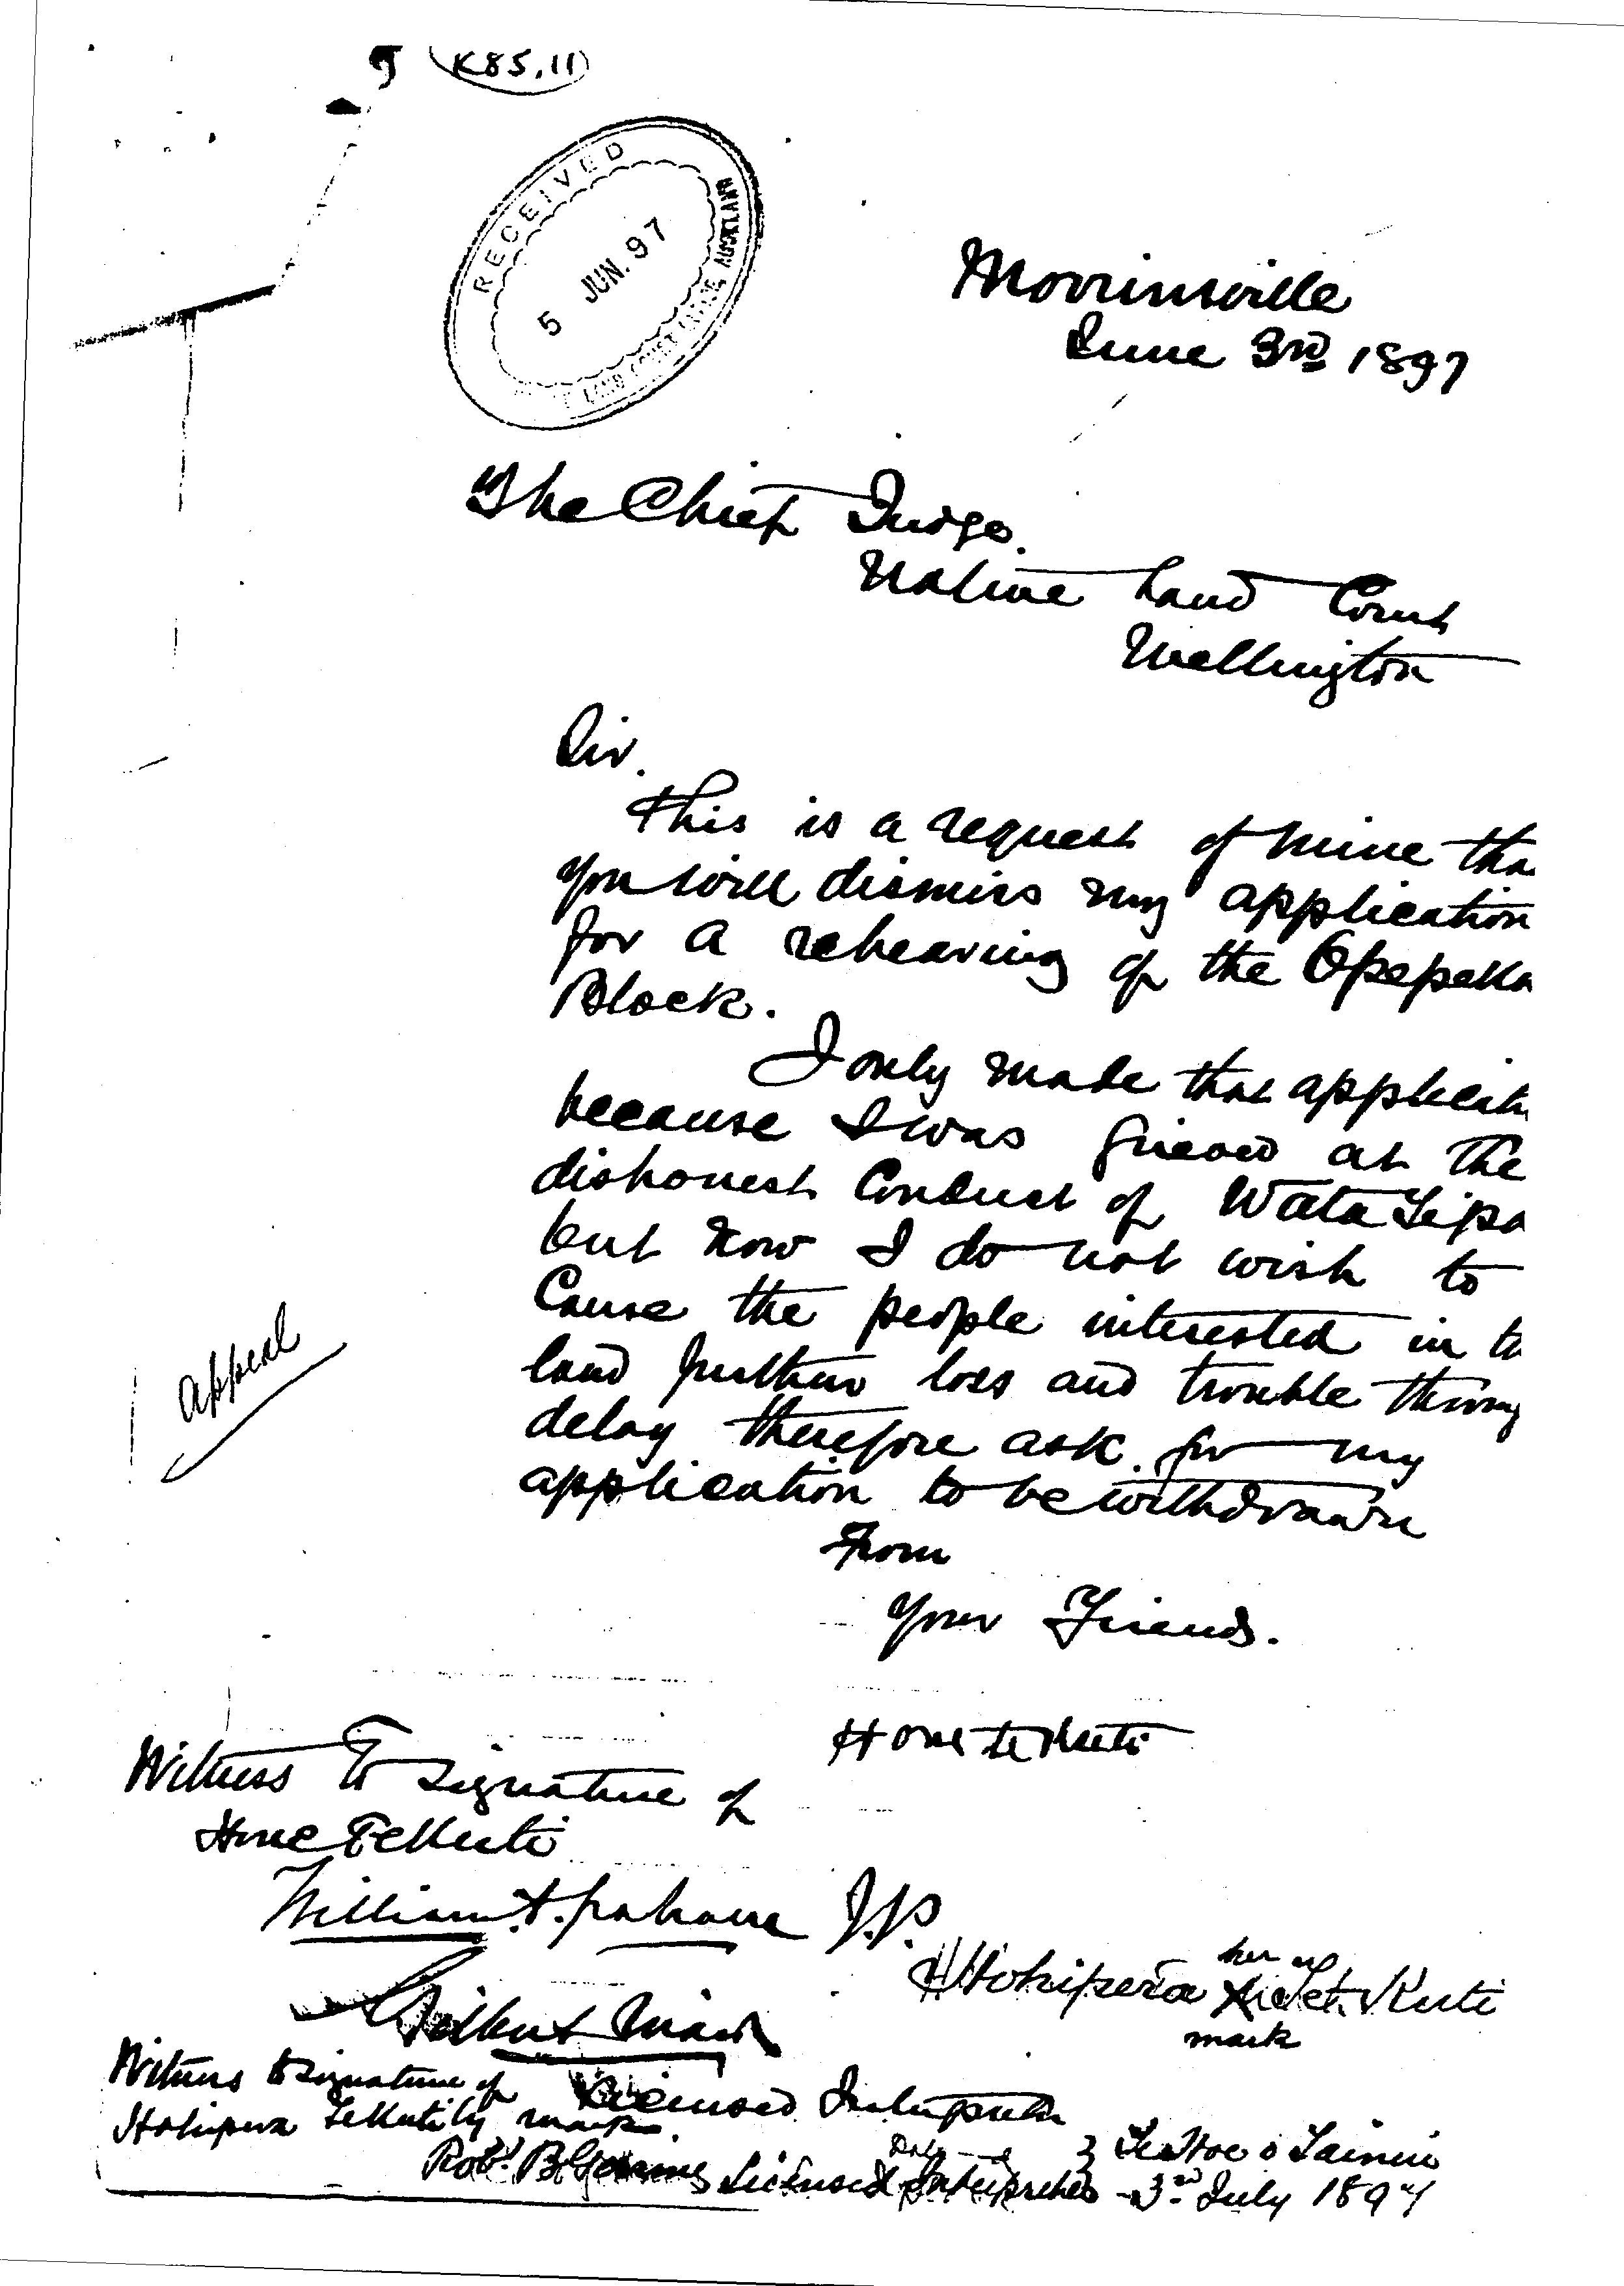 K85.11
RECEIVED
5 JUN. 97
LAND COURT OFFICE, AUCKLAND
Morrinsville
June 3rd 1897
The Chief Judge.
Native Land Court
Wellington
Sir.
This is a request of mine tha
you will dismiss my application
for a rehearing of the Opepeka
Block.
I only made that applicati
because I was grieved at the
dishonest Conduct of Wata Tipa
but now I do not wish to
Cause the people interested in th
land further loss and trouble throug
delay therefore ask for my
application to be withdrawn
From
Your Friend.
Appeal
Hone te Kuti
Witness to signature of
Hone Te Kuti
William J.P.
Hohipera her Te Kuti
mark
Gilbert Mair
Licensed Interpreter
Witness to signature of
Hohipera Te Kuti by mark
Robt. Licensed Interpreter
Te Hoe o Tainui
3rd July 1897